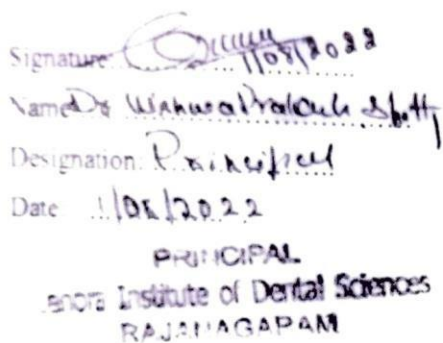 Signature: 1/08/2022
Name Dr Vishwa Prakash Shetty
Designation: Principal
Date 1/08/2022
PRINCIPAL
enora Institute of Dental Sciences
RAJANAGARAM